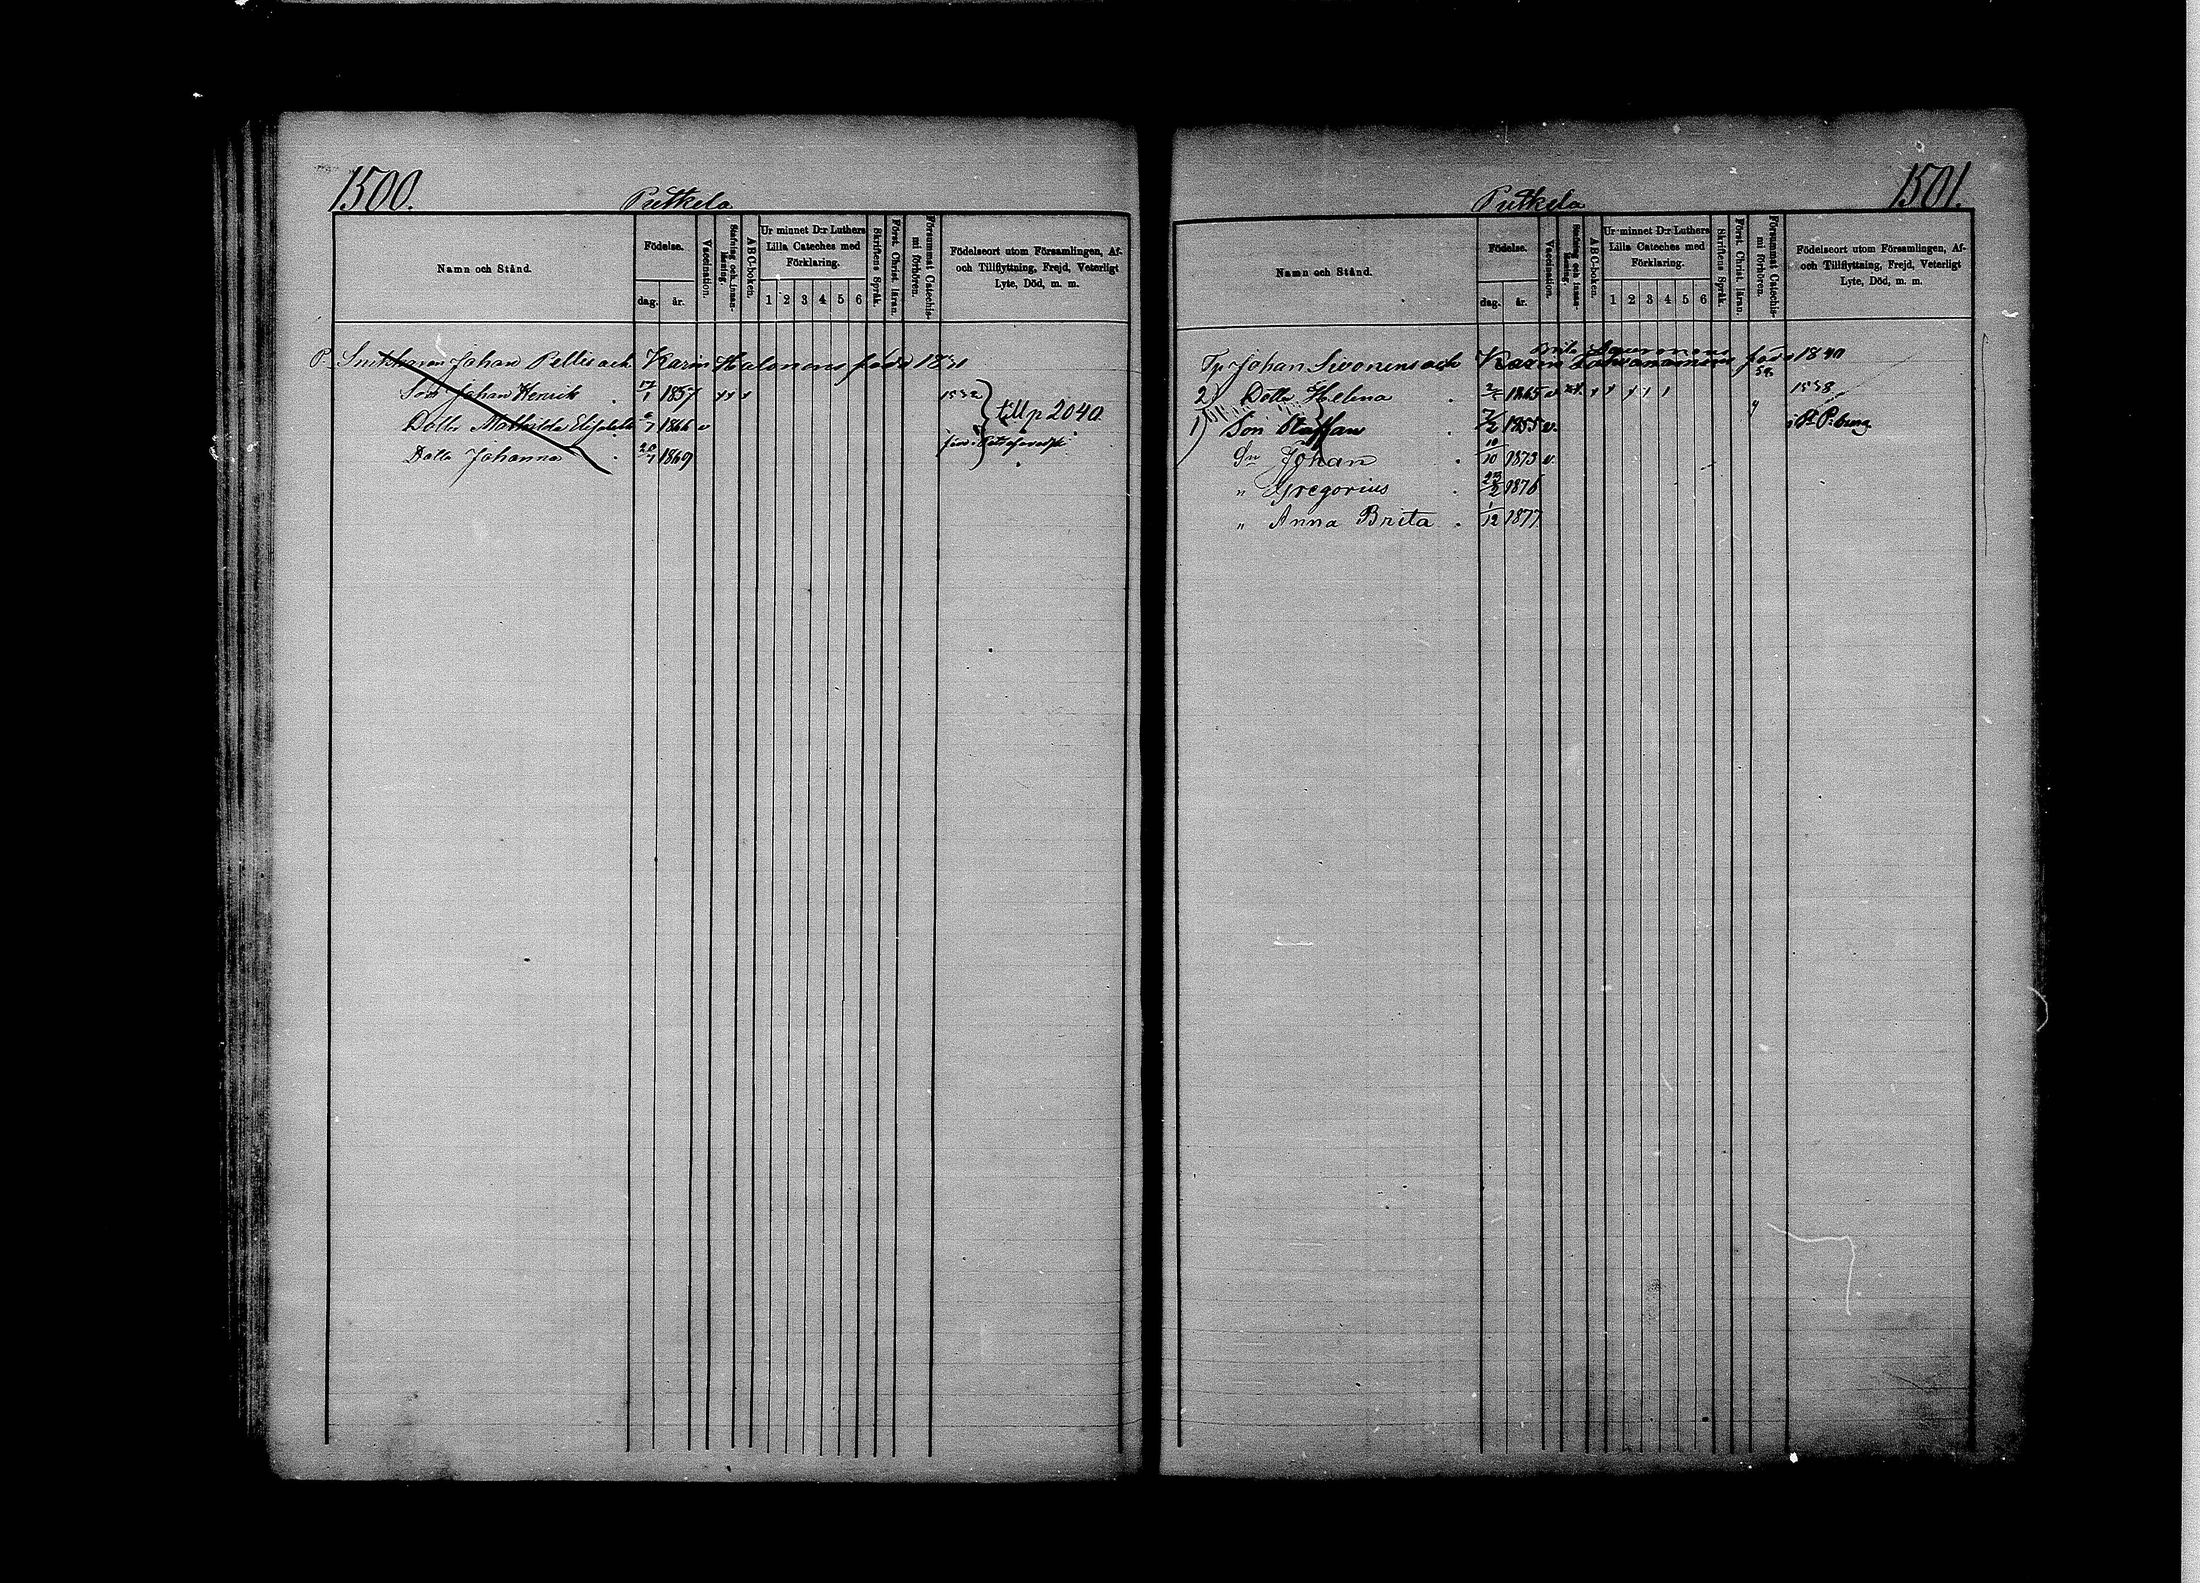 1500.
Putkela
Namn och Stånd.
Födelse.
dag.
år.
Vaccination.
Stafning och innanläsning.
A B C-boken.
Ur minnet D:r Luthers
Lilla Cateches med
Förklaring.
1 2 3 4 5 6
Skriftens Språk.
Först. Christ. läran.
Försummat Catechismi förhören.
Födelseort utom Församlingen, Af-
och Tillflyttning, Frejd, Veterligt
Lyte, Död, m. m.
Johan Pellis och Karin Halonens född 1831
Son Johan Henrik 17/1 1857 1532
Dottr Mathilda 1866 v till p 2040
Dottr Johanna 20/1 1869
1501.
Putkela
Namn och Stånd.
Födelse.
dag.
år.
Vaccination.
Stafning och innanläsning.
A B C-boken.
Ur minnet D:r Luthers
Lilla Cateches med
Förklaring.
1 2 3 4 5 6
Skriftens Språk.
Först. Christ. läran.
Försummat Catechismi förhören.
Födelseort utom Församlingen, Af-
och Tillflyttning, Frejd, Veterligt
Lyte, Död, m. m.
Brita
Johan Sivonens och Karin född 1840
2) Dottr Helena 1865 v 1538
1) Son Staffan 1855 v. i St P:burg
Sn Johan 10/10 1873 v.
" Gregorius 1876
" Anna Brita 1/12 1877